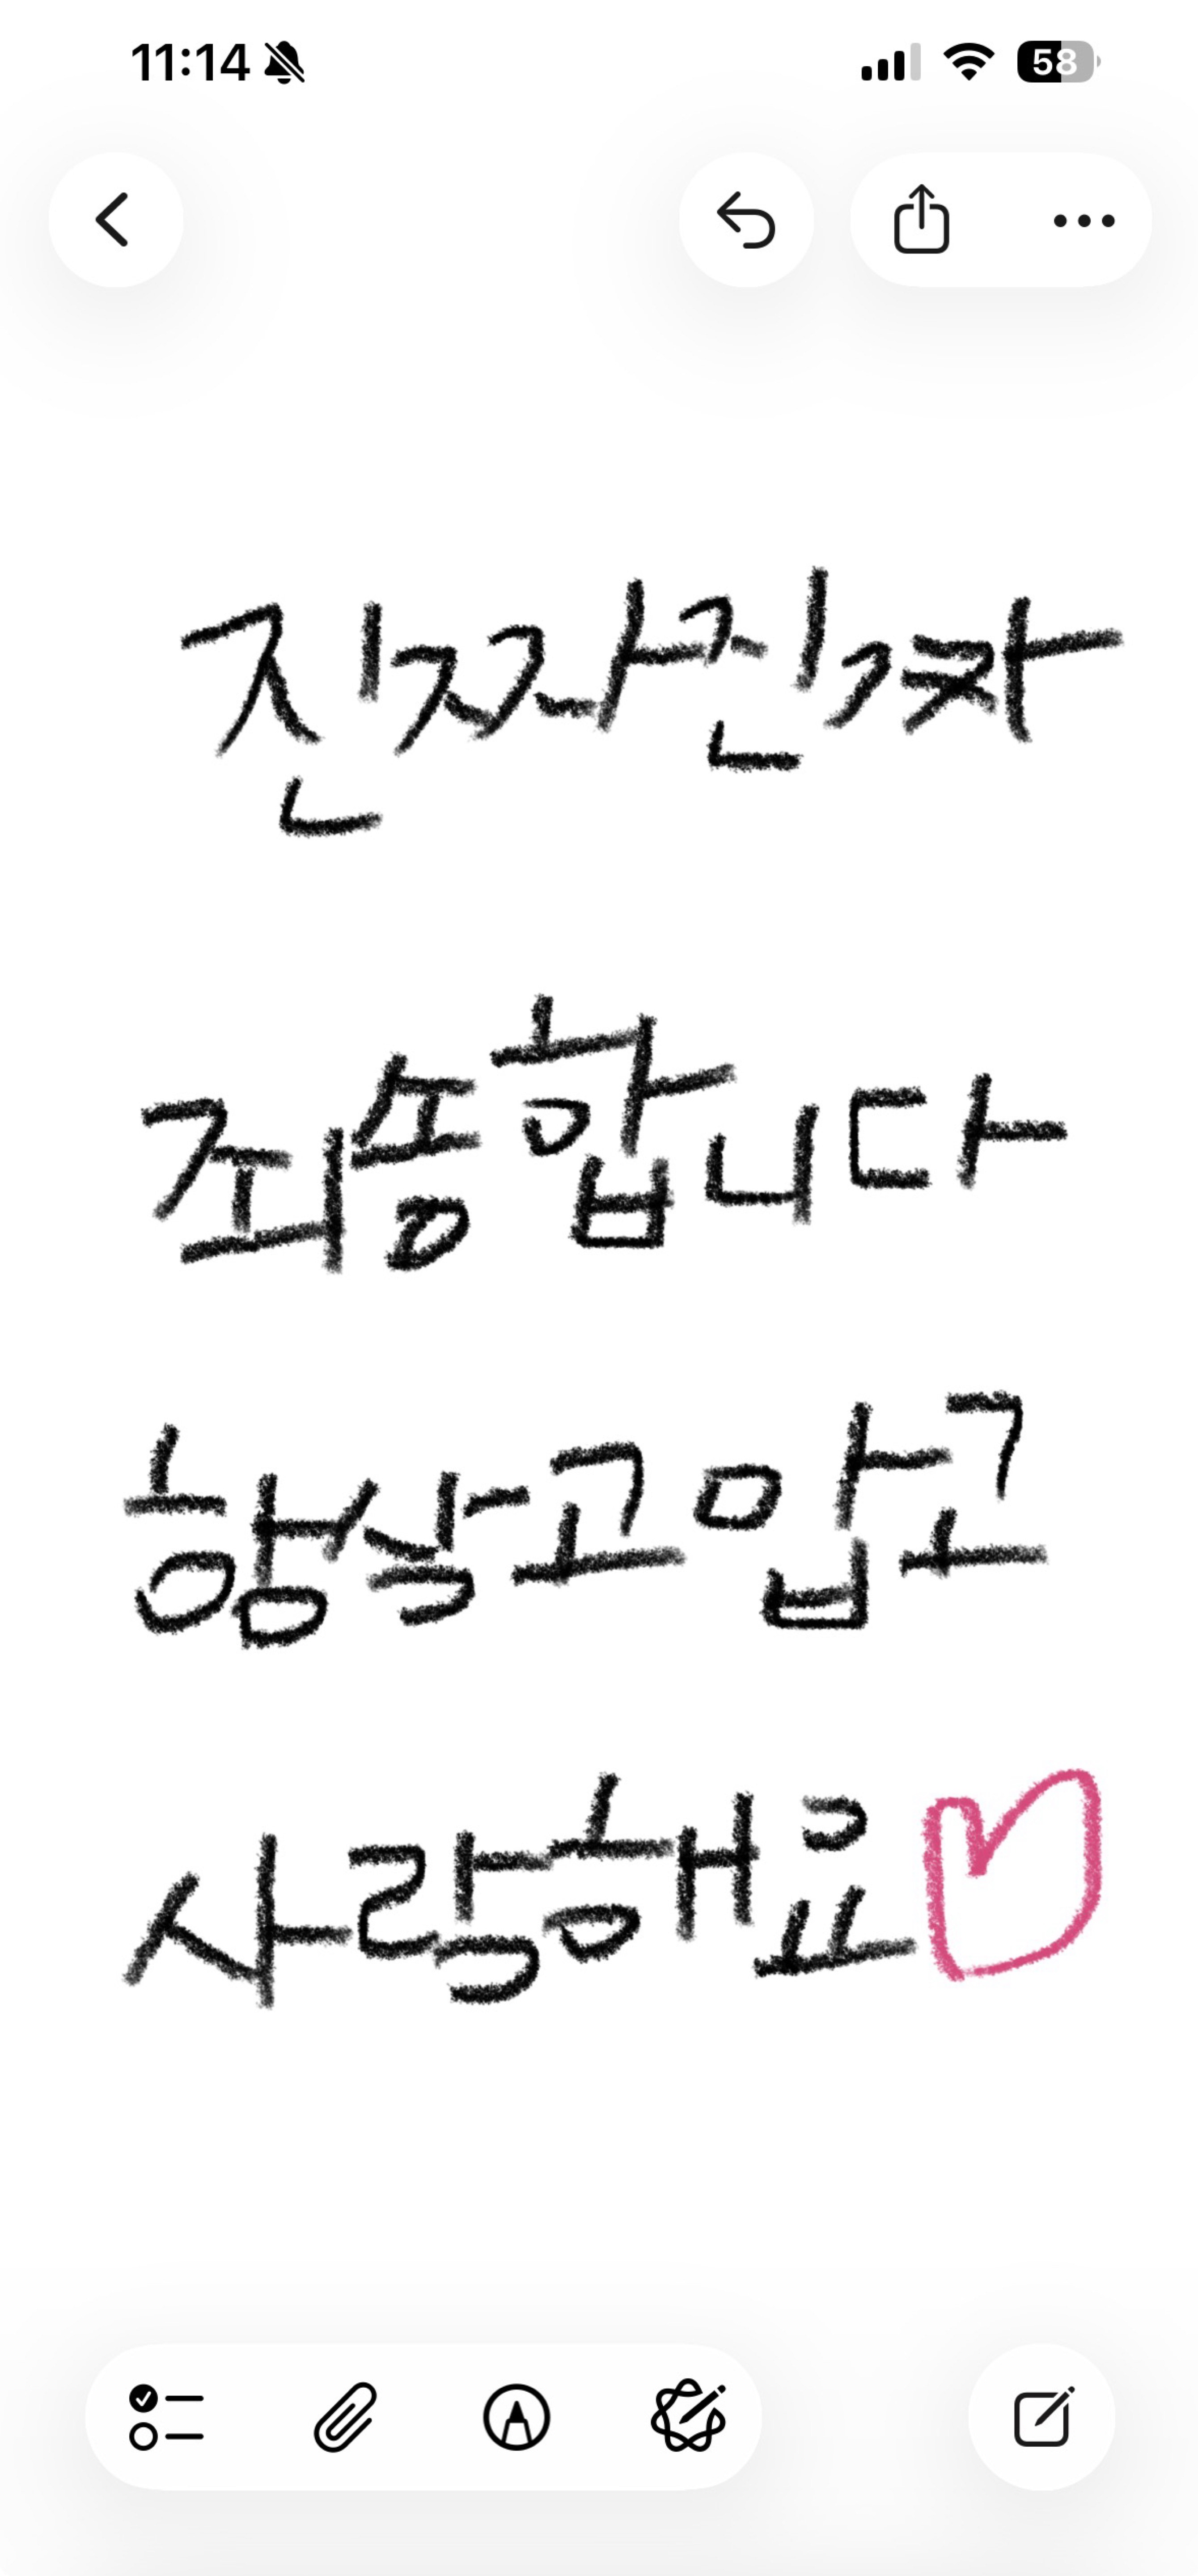 11:14
58
진짜진짜
죄송합니다
항상고맙고
사랑해요